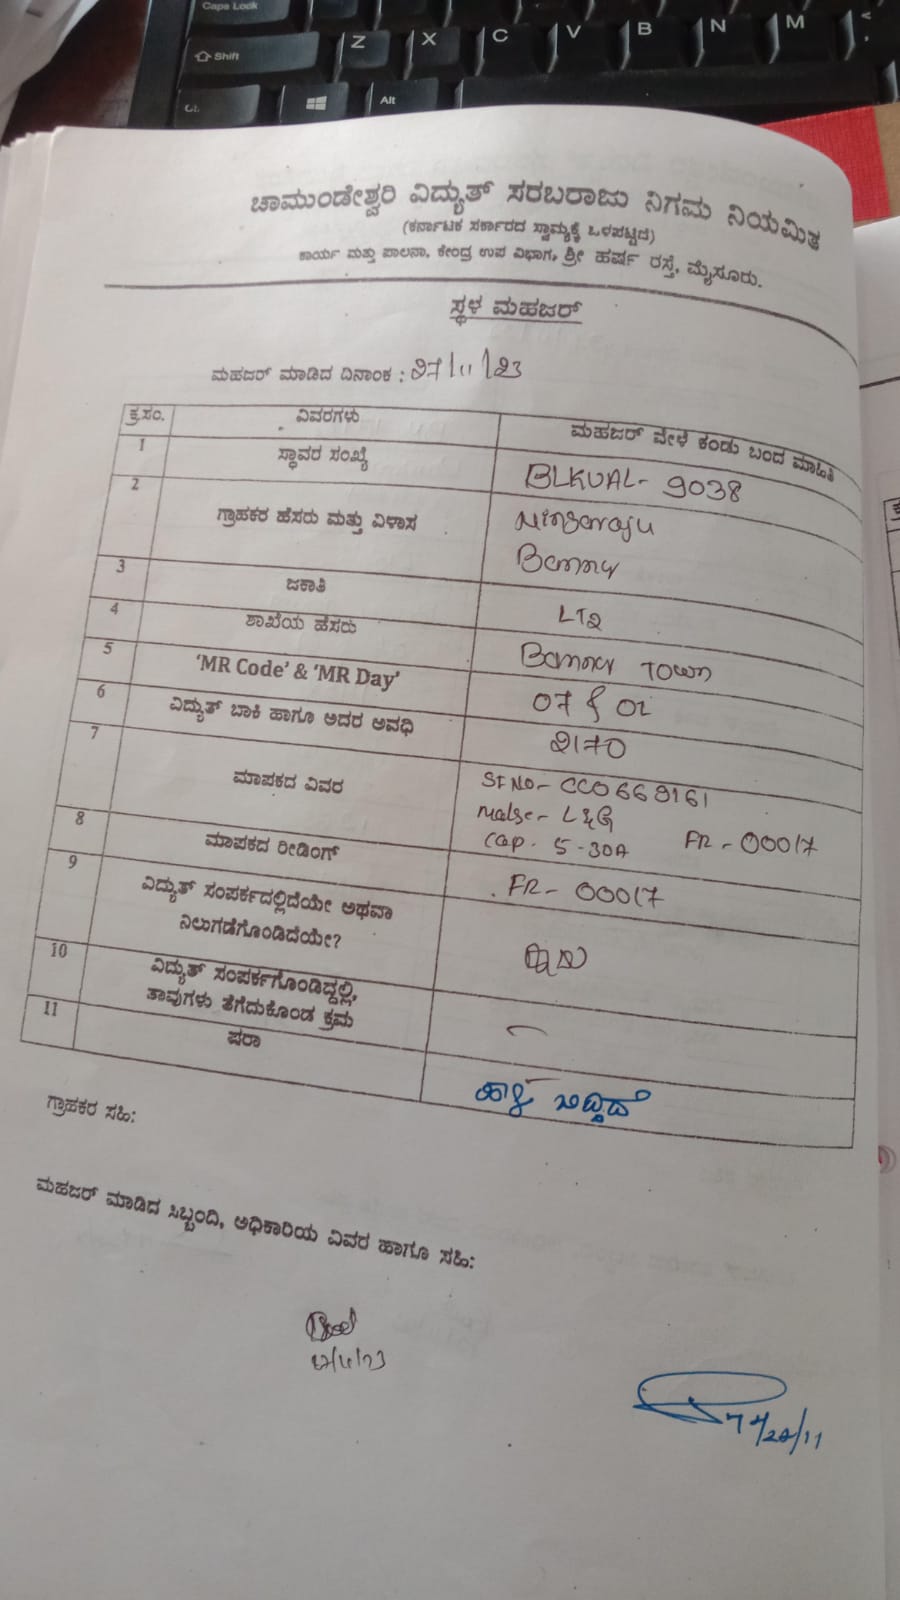 Caps Lock
Shift
Z X C V B N M < ,
Alt
ಚಾಮುಂಡೇಶ್ವರಿ ವಿದ್ಯುತ್ ಸರಬರಾಜು ನಿಗಮ ನಿಯಮಿತ
(ಕರ್ನಾಟಕ ಸರ್ಕಾರದ ಸ್ವಾಮ್ಯಕ್ಕೆ ಒಳಪಟ್ಟಿದೆ)
ಕಾರ್ಯ ಮತ್ತು ಪಾಲನಾ, ಕೇಂದ್ರ ಉಪ ವಿಭಾಗ, ಶ್ರೀ ಹರ್ಷ ರಸ್ತೆ, ಮೈಸೂರು.
ಸ್ಥಳ ಮಹಜರ್
ಮಹಜರ್ ಮಾಡಿದ ದಿನಾಂಕ : 27/11/23
ಕ್ರ.ಸಂ. ವಿವರಗಳು ಮಹಜರ್ ವೇಳೆ ಕಂಡು ಬಂದ ಮಾಹಿತಿ
1 ಸ್ಥಾವರ ಸಂಖ್ಯೆ BLKUAL- 9038
2 ಗ್ರಾಹಕರ ಹೆಸರು ಮತ್ತು ವಿಳಾಸ Ningaraju
Bannur
3 ಜಕಾತಿ LT2
4 ಶಾಖೆಯ ಹೆಸರು Bannur Town
5 'MR Code' & 'MR Day' 07 & 01
6 ವಿದ್ಯುತ್ ಬಾಕಿ ಹಾಗೂ ಅದರ ಅವಧಿ 2170
7 ಮಾಪಕದ ವಿವರ Sl No- CC0669161
Make- L&G
Cap. 5-30A FR - 00017
8 ಮಾಪಕದ ರೀಡಿಂಗ್ FR- 00017
9 ವಿದ್ಯುತ್ ಸಂಪರ್ಕದಲ್ಲಿದೆಯೇ ಅಥವಾ
ನಿಲುಗಡೆಗೊಂಡಿದೆಯೇ?
10 ವಿದ್ಯುತ್ ಸಂಪರ್ಕಗೊಂಡಿದ್ದಲ್ಲಿ,
ತಾವುಗಳು ತೆಗೆದುಕೊಂಡ ಕ್ರಮ
11 ಷರಾ ಬಿದ್ದಿದೆ
ಗ್ರಾಹಕರ ಸಹಿ:
ಮಹಜರ್ ಮಾಡಿದ ಸಿಬ್ಬಂದಿ, ಅಧಿಕಾರಿಯ ವಿವರ ಹಾಗೂ ಸಹಿ: